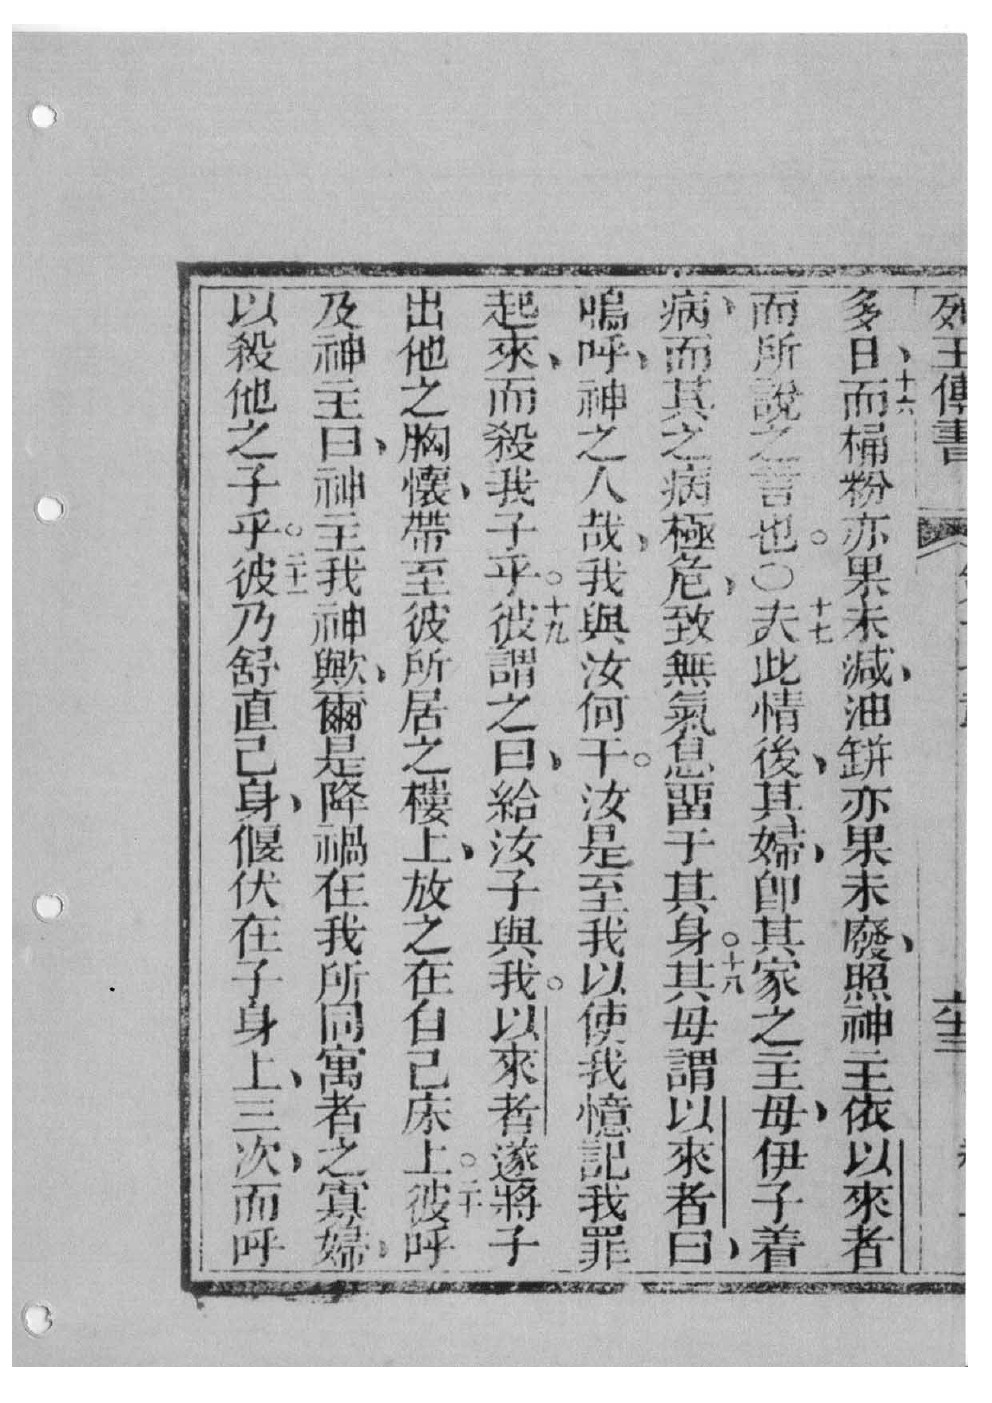 列王傳書
多日、十六而桶粉亦果未減、油缾亦果未廢、照神主依以來者
而所說之言也。〇十七夫此情後、其婦、卽其家之主母、伊子着
病、而其之病極危、致無氣息畱于其身。十八其母謂以來者曰、
嗚呼、神之人哉、我與汝何干。汝是至我以使我憶記我罪
起來、而殺我子乎。十九彼謂之曰、給汝子與我。以來者遂將子
出他之胸懷、帶至彼所居之樓上、放之在自己床上。二十彼呼
及神主曰、神主我神歟、爾是降禍在我所同寓者之寡婦、
以殺他之子乎。二十一彼乃舒直己身、偃伏在子身上、三次、而呼